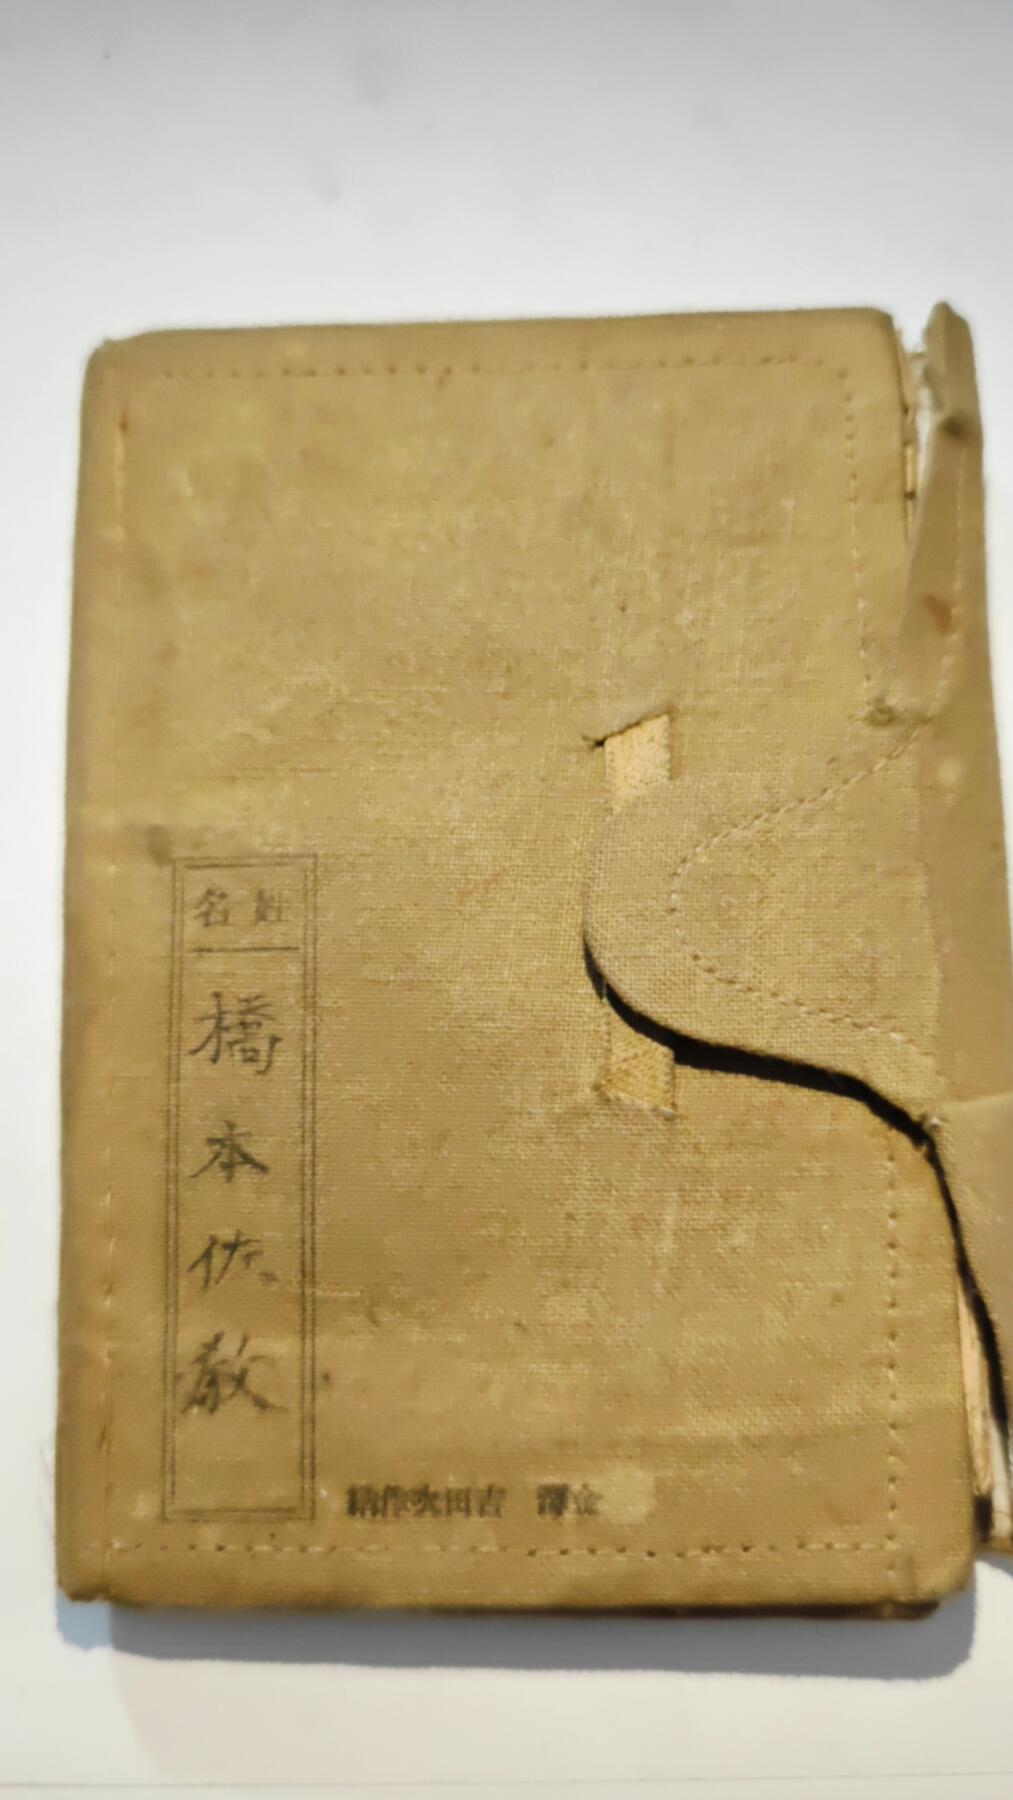 姓名
橋本佐敬
金澤 吉田次作納